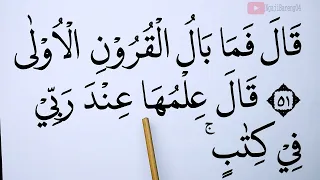 قَالَ فَمَا بَالُ الْقُرُوْنِ الْاُوْلٰى
﴿٥١﴾ قَالَ عِلْمُهَا عِنْدَ رَبِّيْ
فِيْ كِتٰبٍ ۚ